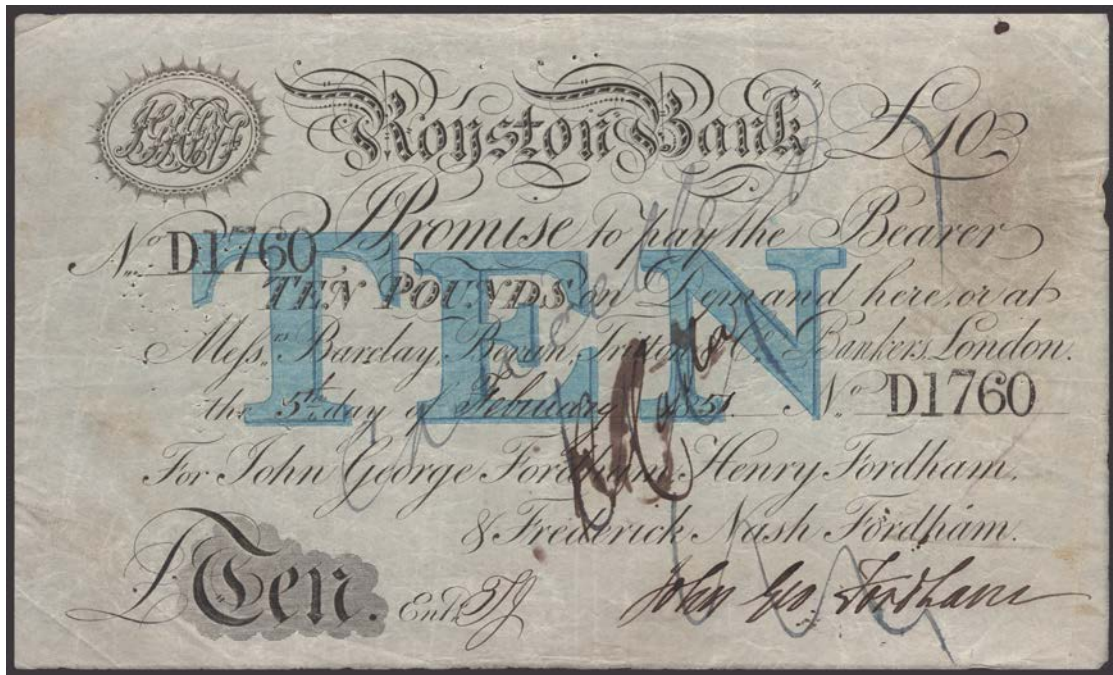 Royston Bank £10
I Promise to pay the Bearer
No. D1760
TEN
TEN POUNDS on Demand here, or at
Messrs. Barclay, Bevan, Tritton & Co. Bankers, London.
the 5th day of February 1851 No. D1760
For John George Fordham, Henry Fordham,
& Frederick Nash Fordham.
£ Ten. Entd.
John Geo. Fordham